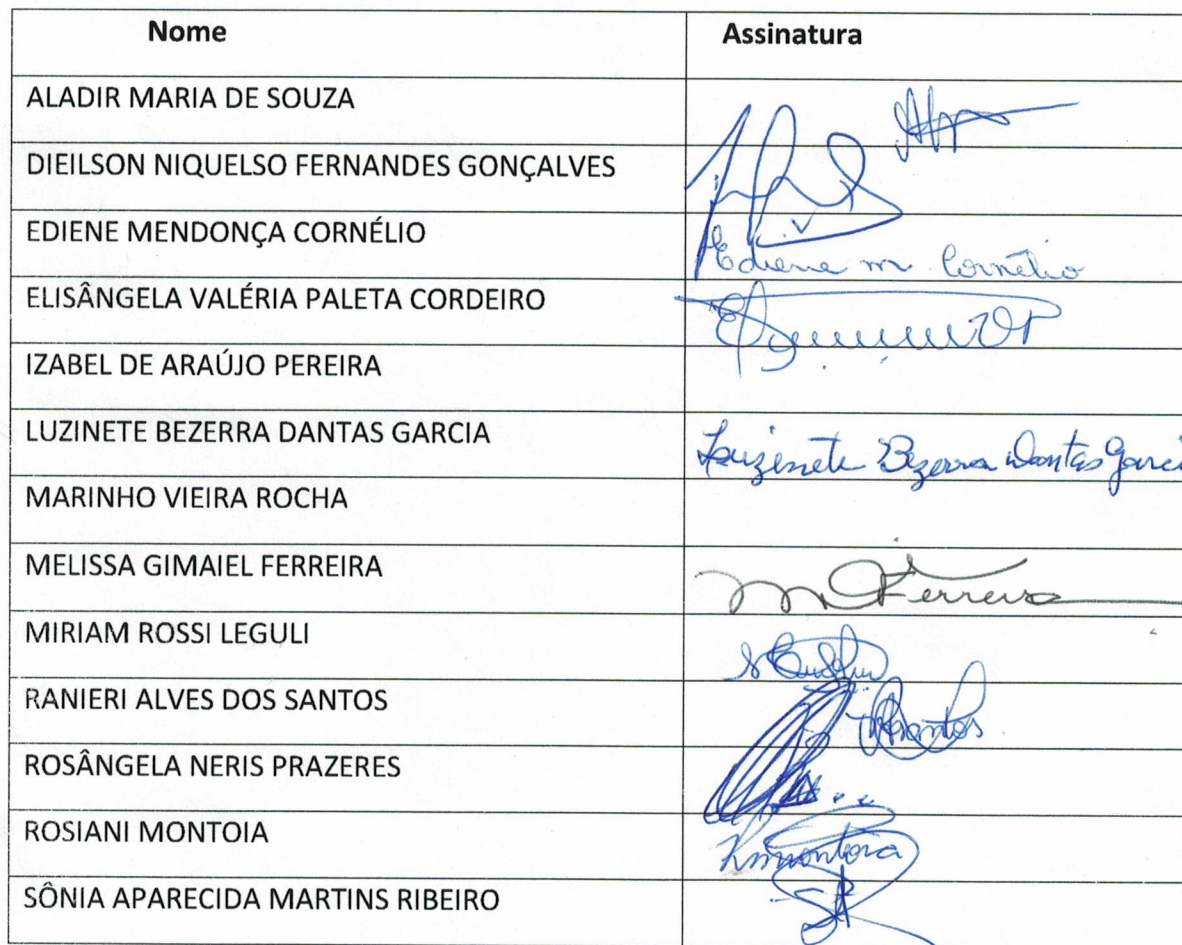 Nome Assinatura
ALADIR MARIA DE SOUZA
DIEILSON NIQUELSO FERNANDES GONÇALVES
EDIENE MENDONÇA CORNÉLIO Ediene m. Cornélio
ELISÂNGELA VALÉRIA PALETA CORDEIRO
IZABEL DE ARAÚJO PEREIRA
LUZINETE BEZERRA DANTAS GARCIA Luzinete Bezerra Dantas Garci
MARINHO VIEIRA ROCHA
MELISSA GIMAIEL FERREIRA M Ferreira
MIRIAM ROSSI LEGULI
RANIERI ALVES DOS SANTOS
ROSÂNGELA NERIS PRAZERES
ROSIANI MONTOIA
SÔNIA APARECIDA MARTINS RIBEIRO